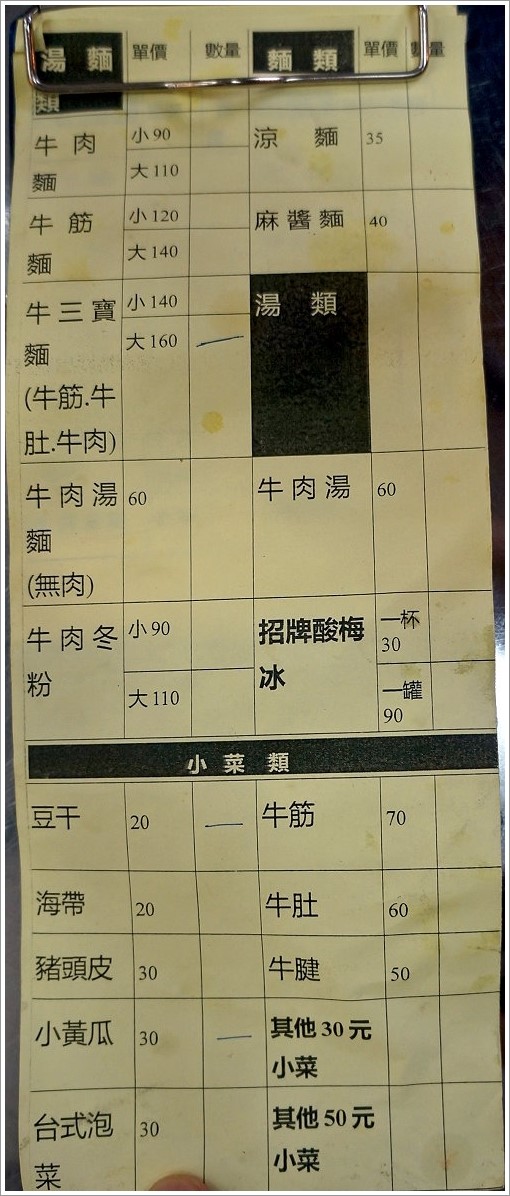 湯 麵 單價 數量 麵 類 單價 數量
類
牛 肉 小 90 涼 麵 35
麵 大 110
牛 筋 小 120 麻 醬 麵 40
麵 大 140
牛 三 寶 小 140 湯 類
麵 大 160 一
(牛筋.牛
肚.牛肉)
牛 肉 湯 60 牛 肉 湯 60
麵
(無肉)
牛 肉 冬 小 90 招牌酸梅 一杯
30
粉 大 110 冰 一罐
90
小 菜 類
豆干 20 一 牛筋 70
海帶 20 牛肚 60
豬頭皮 30 牛腱 50
小黃瓜 30 一 其他 30 元
小菜
台式泡 30 其他 50 元
菜 小菜